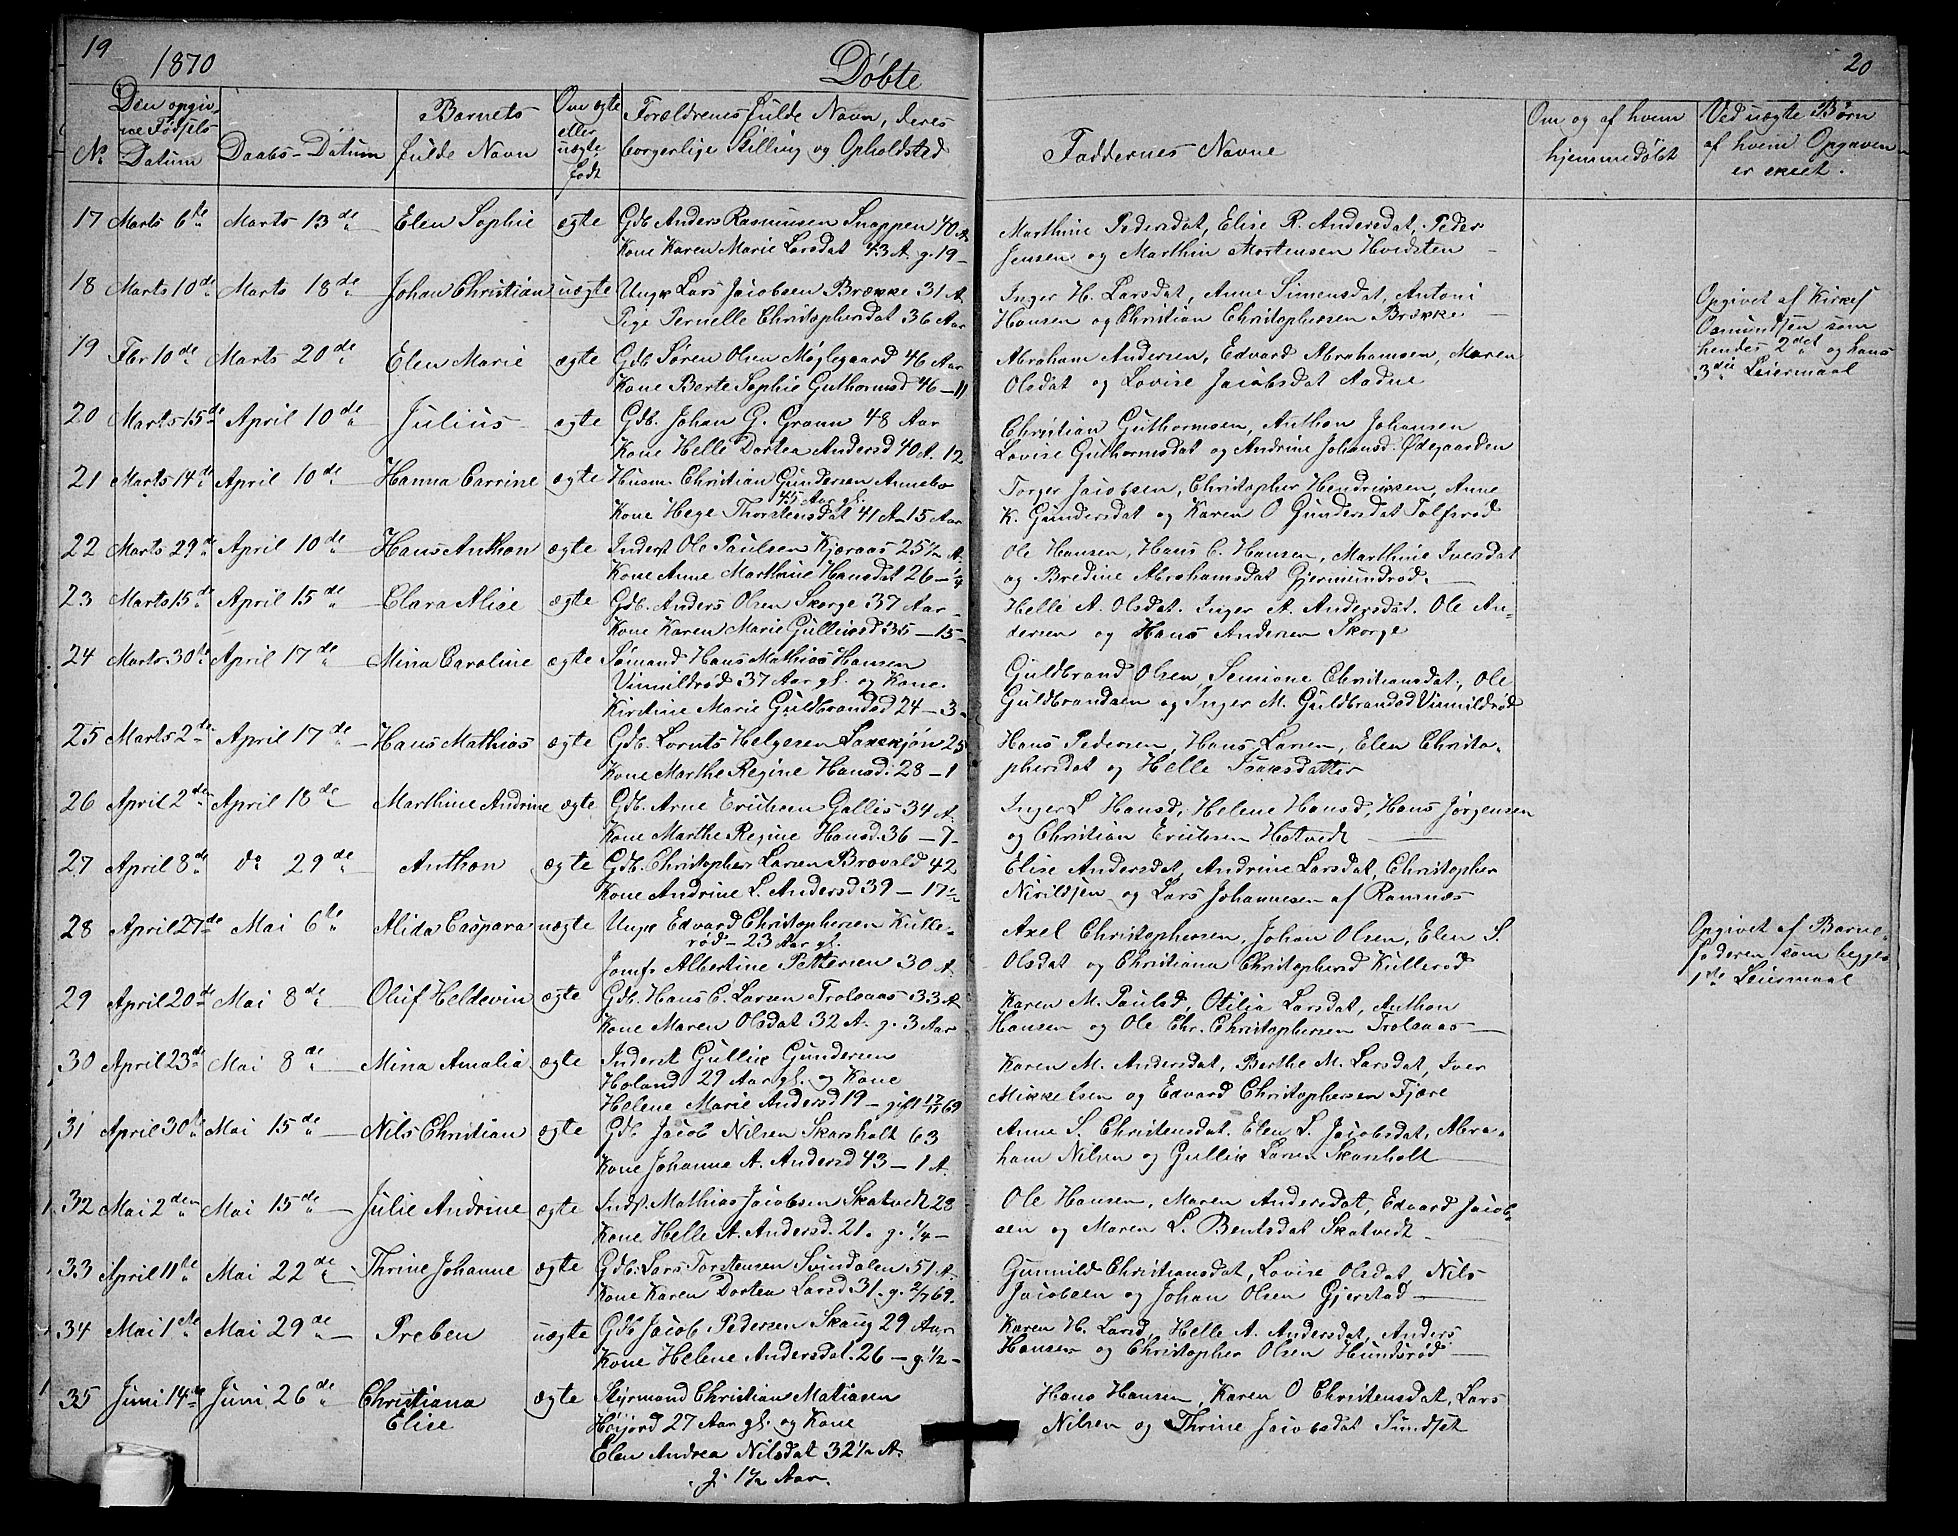 19
1870
Døbte
20
No
Den opgiv-
ne Fødsels-
Datum
Daabs-Datum
Barnets
fulde Navn
Om ægte
eller
uægte
født
Forældrenes fulde Navn, deres
borgerlige Stilling og Opholdsted
Faddernes Navne
Om og af hvem
hjemmedøbt
Ved uægte Børn
af hvem Opgaven
er skeet.
17 Marts 6te Marts 13de Elen Sophie ægte Gdb. Anders Rasmussen Snappen 40 A.
Kone Karen Marie Larsdat 43 A. g. 19 -
Marthine Pedersdat, Elise R. Andersdat, Peder
Jensen og Marthin Mortensen Hvidsten
18 Marts 10de Marts 18de Johan Christian uægte Ungk Lars Jacobsen Brække 31 A.
Pige Pernelle Christophersdat 36 Aar
Inger H. Larsdat, Anne Simensdat, Antoni
Hansen og Christian Christophersen Brække
Opgivet af Kirkes
Osmundsen som
hendes 2det og hans
3die Leiermaal
19 Fbr 10de Marts 20de Elen Marie ægte Gdb. Søren Olsen Møglegaard 46 Aar
Kone Berte Sophie Guthormsd 46 - 11
Abraham Andersen, Edvard Abrahamsen, Maren
Olsdat og Lovise Jacobsdat Aadne
20 Marts 15de April 10de Julius ægte Gdb. Johan G. Grann 48 Aar
Kone Helle Dortea Andersd 40 A. 12
Christian Guthormsen, Anthon Johansen
Lovise Guthormsdat og Andrine Johansd. Ødegaarden
21 Marts 14de April 10de Hanna Carrine ægte Husm. Christian Gundersen Annebo
45 Aar gl.
Kone Hege Thorstensdat 41 A. 15 Aar
Torger Jacobsen, Christopher Hendriksen, Anne
K. Gundersdat og Karen O Gundersdat Tolfsrød
22 Marts 29de April 10de Hans Anthon ægte Inderst Ole Paulsen Kjæraas 25 1/2 A.
Kone Anne Marthine Hansdat 26 - 1/4
Ole Hansen, Hans C. Hansen, Marthine Ivesdat
og Bredine Abrahamsdat Gjermundrød.
23 Marts 15de April 15de Clara Alise ægte Gdb. Anders Olsen Skorge 37 Aar
Kone Karen Marie Gulliksd 35 - 15 -
Helle A. Olsdat. Inger A. Andersdat. Ole An-
dersen og Hans Andersen Skorge
24 Marts 30te April 17de Mina Caroline ægte Sømand Hans Mathias Hansen
Vimildrød 37 Aar gl. og Kone
Kirstine Marie Guldbrandsd 24 - 3 -
Guldbrand Olsen, Semione Christiansdat, Ole
Guldbrandsen og Inger M. Guldbrandsd Vimildrød
25 Marts 2de April 17de Hans Mathias ægte Gdb. Lornts Helgesen Laxskjøn 25
Kone Marthe Regine Hansd. 28 - 1
Hans Pedersen, Hans Larsen, Elen Christo-
phersdat og Helle Isaksdatter
26 April 2den April 18de Marthine Andrine ægte Gdb. Arne Eriksen Gallis 34 A.
Kone Marthe Regine Hansd. 36 - 7 -
Inger L Hansd, Helene Hansd, Hans Jørgensen
og Christian Eriksen Hotvedt
27 April 8de do 29de Anthon ægte Gdb. Christopher Larsen Brovald 42
Kone Andrine L. Andersd 39 - 17 1/2
Elise Andersdat, Andrine Larsdat, Christopher
Nirildsen og Lars Johannesen af Ramnæs
28 April 27de Mai 6te Alida Caspara uægte Ungk Edvard Christophersen Kulle-
rød - 23 Aar gl.
Jomf. Albertine Pettersen 30 A.
Axel Christophersen, Johan Olsen, Elen S.
Olsdat og Christiana Christophersd Kullerød
Opgivet af Barne-
faderen som begges
1ste Leiermaal
29 April 20de Mai 8de Oluf Heldevin ægte Gdb. Hans C. Larsen Trolsaas 33 A.
Kone Maren Olsdat 32 A. g. 3 Aar
Karen M. Paulsd, Otilia Larsdat, Anthon
Hansen og Ole Chr. Christophersen Trolsaas
30 April 23de Mai 8de Mina Amalia ægte Inderst Gullik Gundersen
Holand 29 Aar gl. og Kone
Helene Marie Andersd 19 - gift 17/11 69
Karen M. Andersdat, Berthe M. Larsdat, Iver
Mikkelsen og Edvard Christophersen Fjære
31 April 30te Mai 15de Nils Christian ægte Gdb. Jacob Nilsen Skarsholt 63
Kone Johanne A. Andersd 43 - 1 A.
Anne S. Christensdat. Elen L. Jacobsdat, Abra-
ham Nilsen og Gullik Larsen Skarsholt
32 Mai 2den Mai 15de Julie Andrine ægte Indst. Mathias Jacobsen Skatvedt 28
Kone Helle A. Andersd. 21. g. 1/4 -
Ole Hansen, Maren Andersdat, Edvard Jacob-
sen og Maren L. Bentsdat Skatvedt
33 April 11te Mai 22de Thrine Johanne ægte Gdb. Lars Torstensen Svindalen 51 A.
Kone Karen Dortea Larsd 31. g. 2/7 69.
Gunnild Christiansdat, Lovise Olsdat, Nils
Jacobsen og Johan Olsen Gjerstad
34 Mai 1ste Mai 29de Preben uægte Gdb Jacob Pedersen Skaug 29 Aar
Kone Helene Andersdat. 26 - g. 1/2 -
Karen H. Larsd, Helle A. Andersdat, Anders
Hansen og Christopher Olsen Hundsrød
35 Juni 14de Juni 26de Christiana
Elise ægte Styrmand Christian Matiasen
Høijord 27 Aar gl. og Kone
Elen Andrea Nilsdat 32 1/2 A.
g. 1 1/2 Aar.
Hans Hansen, Karen O Christensdat, Lars
Nilsen og Thrine Jacobsdat Sundset